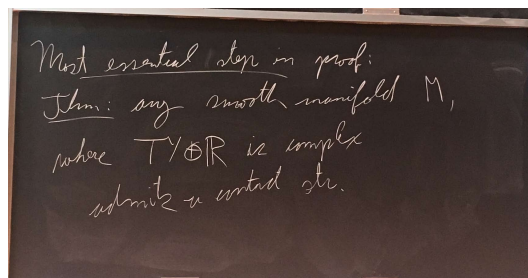 Most essential step in proof:
Thm: any smooth manifold M,
where TY⊕ℝ is complex
admits a contact str.